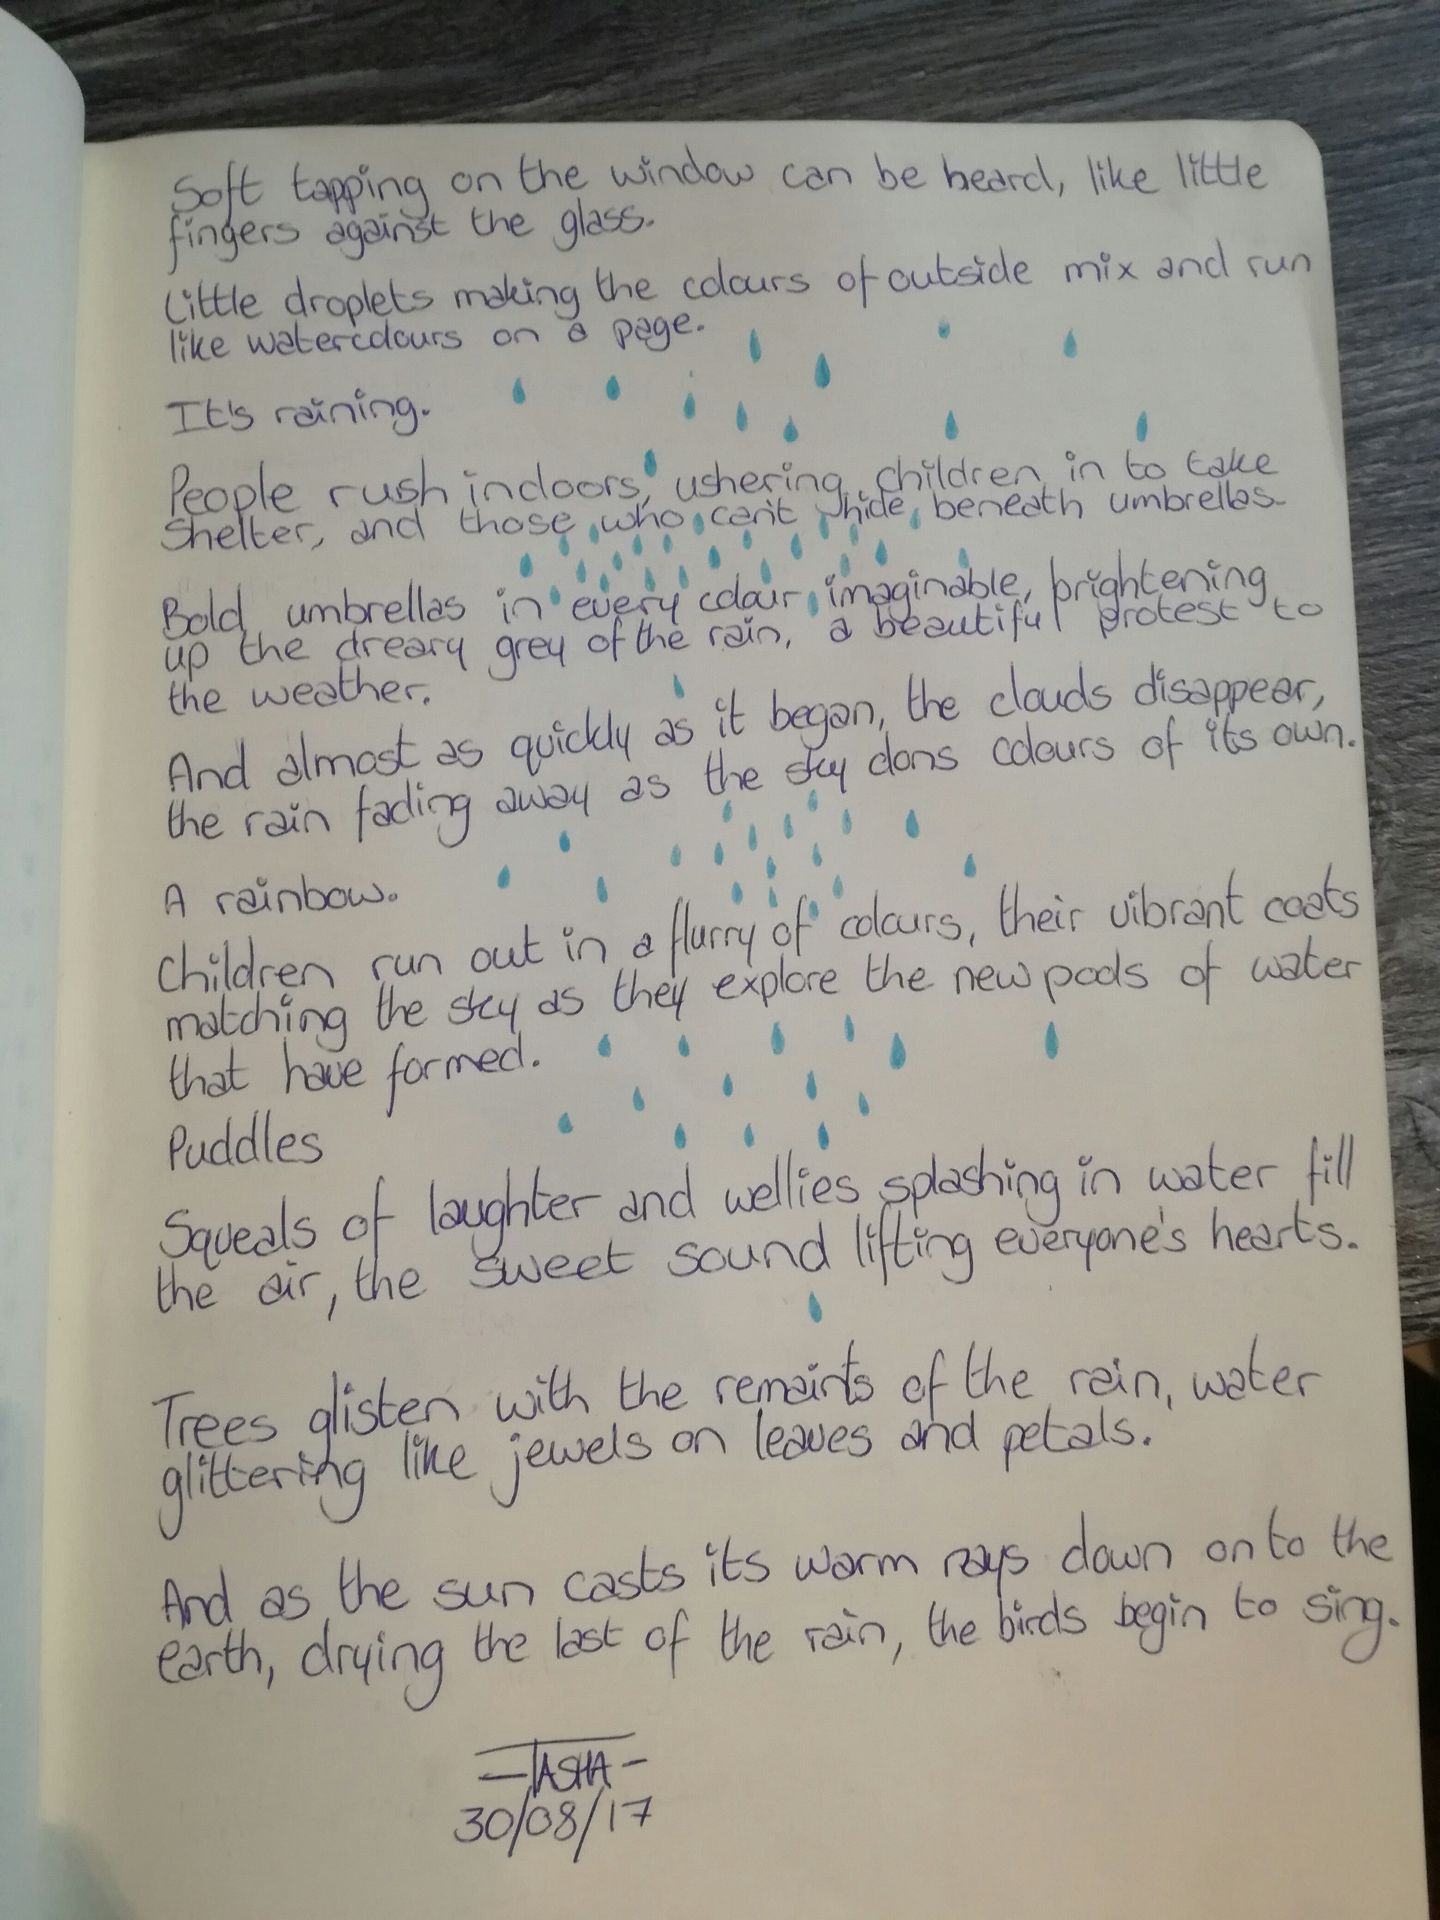 Soft tapping on the window can be heard, like little
fingers against the glass.
Little droplets making the colours of outside mix and run
like watercolours on a page.
It's raining.
People rush indoors, ushering children in to take
shelter, and those who can't hide beneath umbrellas.
Bold umbrellas in every colour imaginable, brightening
up the dreary grey of the rain, a beautiful protest to
the weather.
And almost as quickly as it began, the clouds disappear,
the rain fading away as the sky dons colours of its own.
A rainbow.
Children run out in a flurry of colours, their vibrant coats
matching the sky as they explore the new pools of water
that have formed.
Puddles
Squeals of laughter and wellies splashing in water fill
the air, the sweet sound lifting everyone's hearts.
Trees glisten with the remaints of the rain, water
glittering like jewels on leaves and petals.
And as the sun casts its warm rays down onto the
earth, drying the last of the rain, the birds begin to sing.
—TASHA—
30/08/17